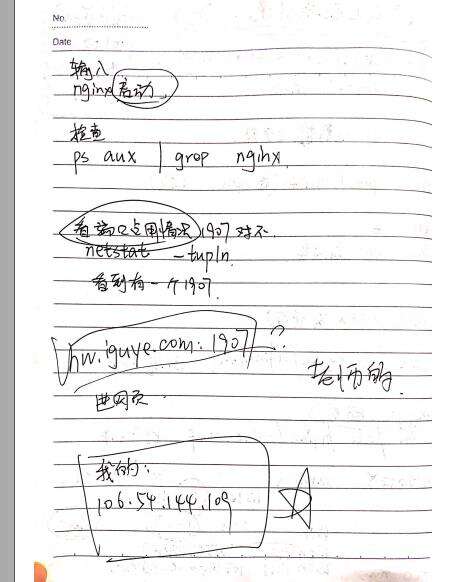 No.
Date
输入
nginx 启动
检查
ps aux | grep nginx
看端口占用情况 1907 对不
netstat -tupln
看到有一个1907
hw.iguye.com:1907 ?
老师的
出网页
我的:
106.54.144.109